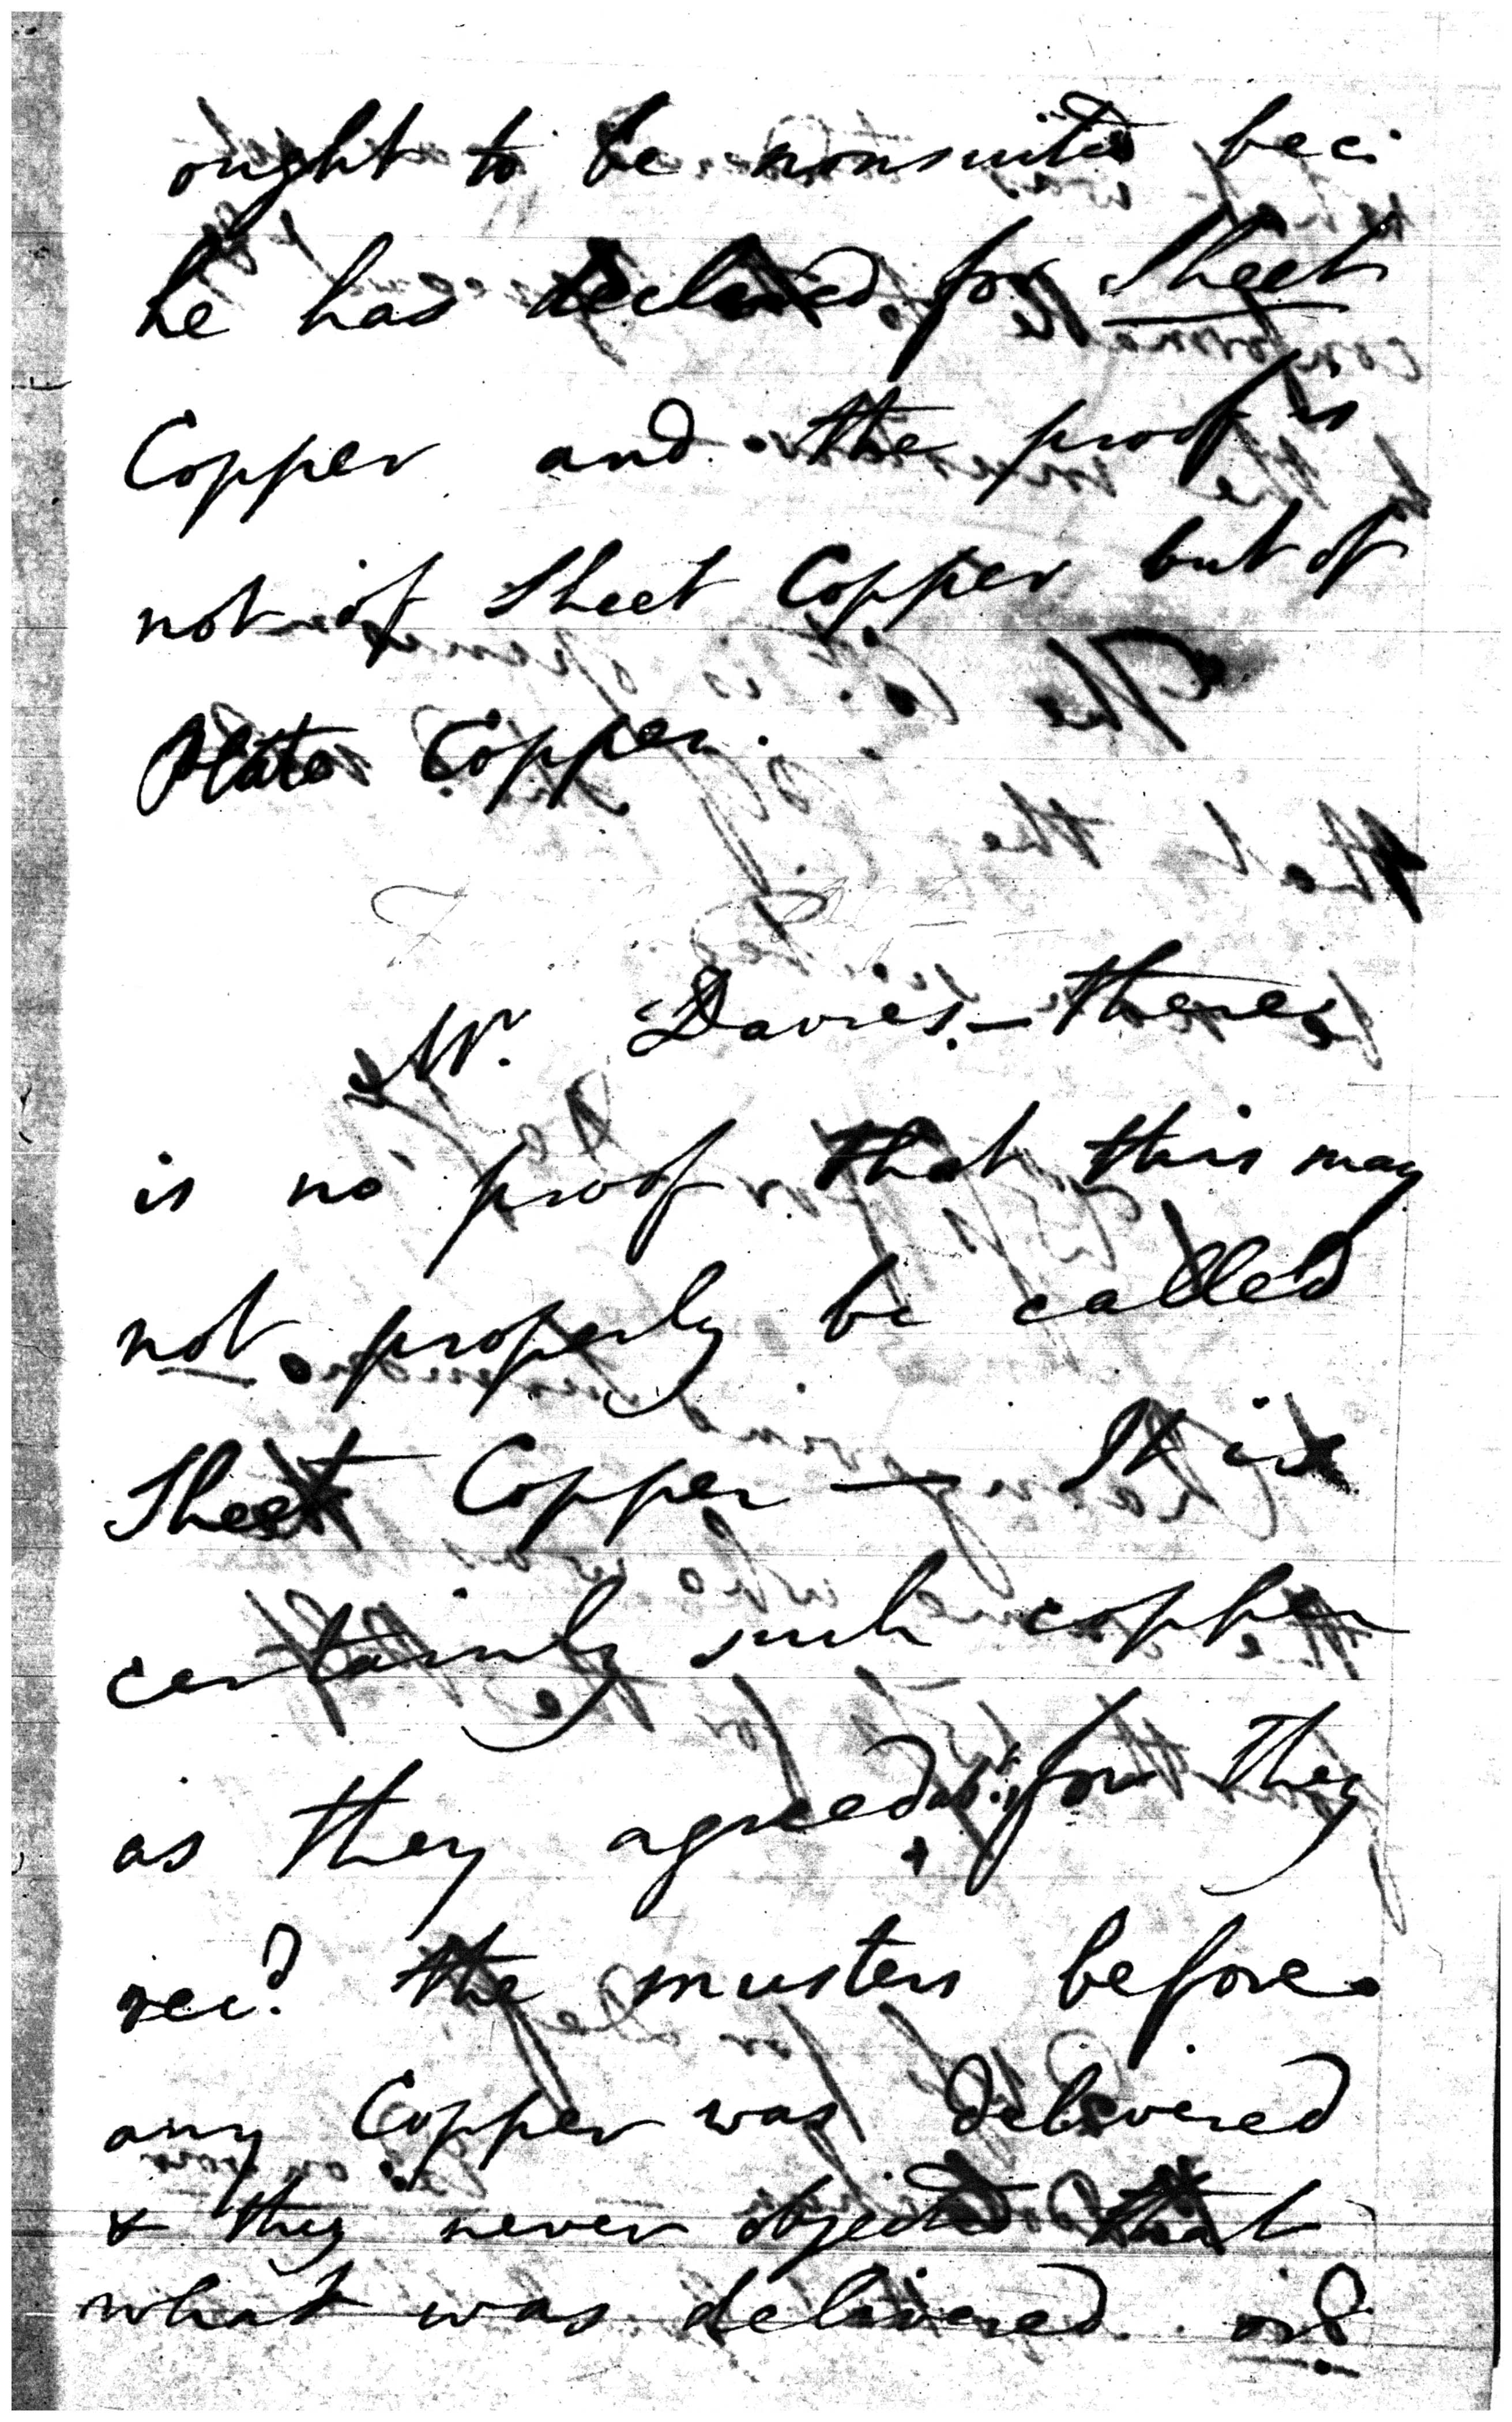 ought to be nonsuited bec:
he has declared for Sheet
Copper and the proof is
not of Sheet Copper but of
Plate Copper.
Mr. Davies. — there
is no proof that this may
not properly be called
Sheet Copper — It is
certainly such copper
as they agreed for they
recd. the musters before
any Copper was delivered
& they never objected that
what was delivered